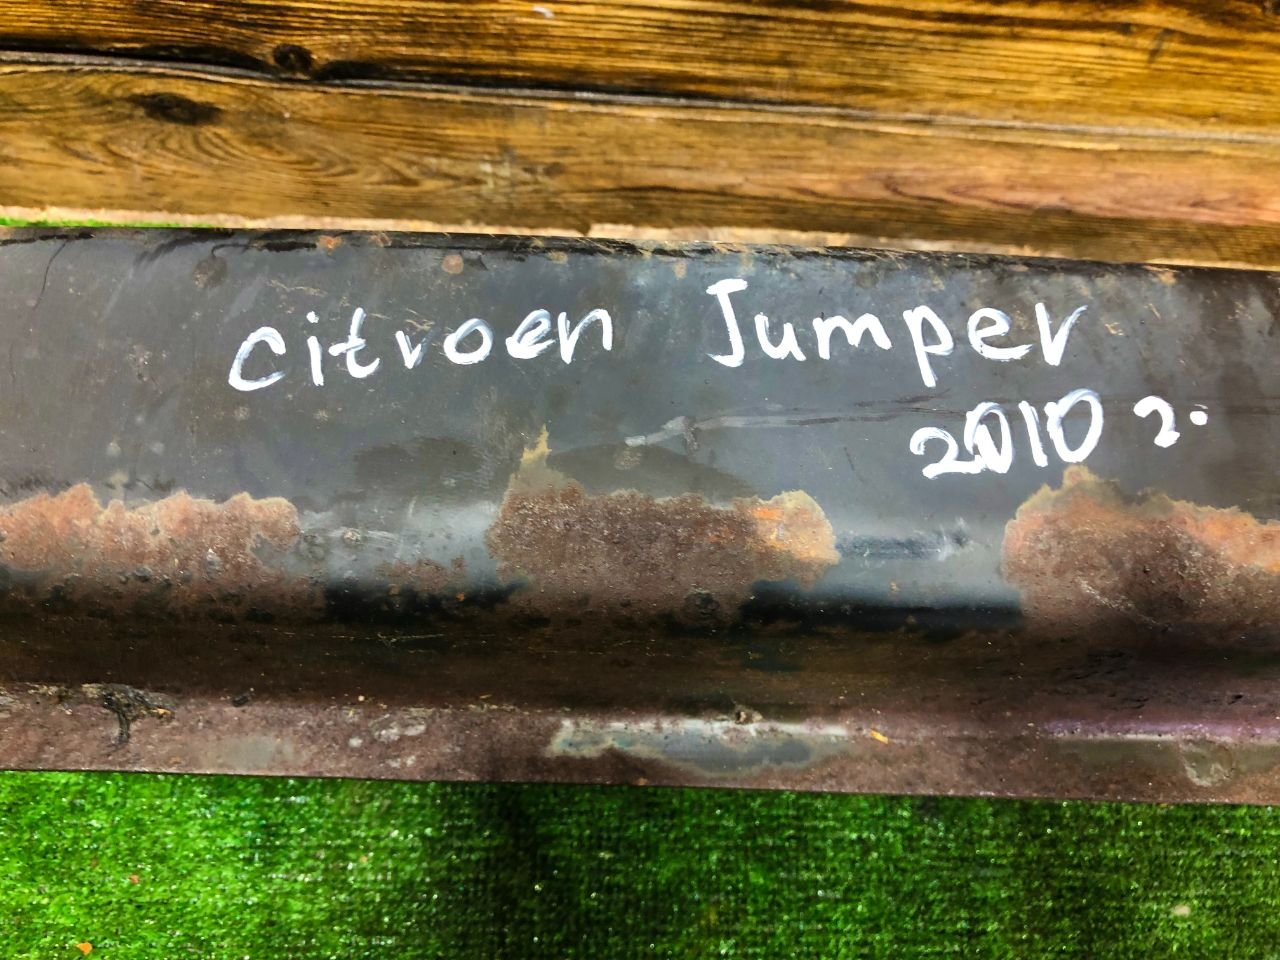 Citroen Jumper
2010 г.